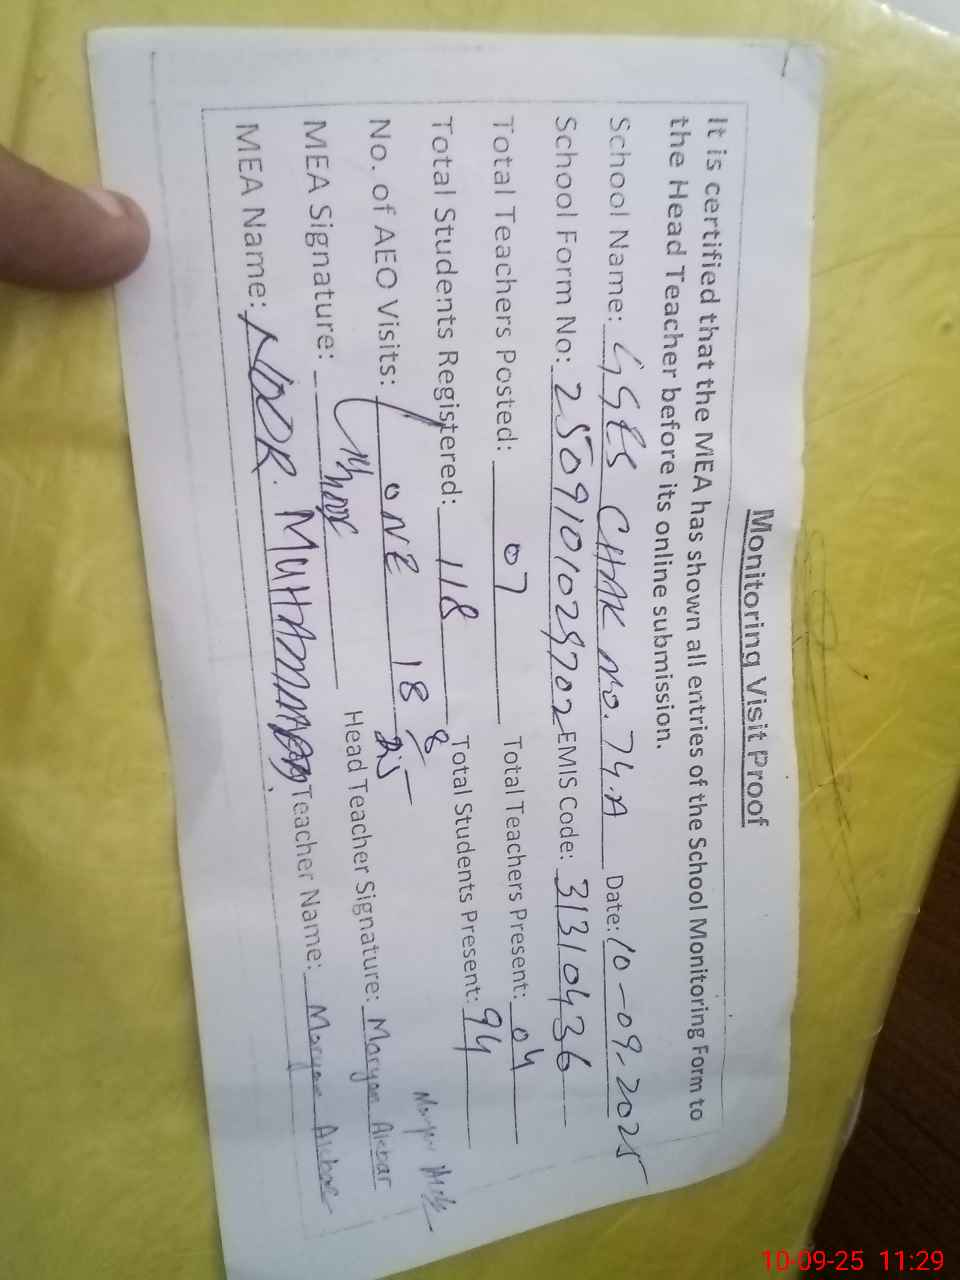 Monitoring Visit Proof
It is certified that the MEA has shown all entries of the School Monitoring Form to
the Head Teacher before its online submission.
School Name: GGES CHAK NO. 74.A Date: 10-09-2025
School Form No: 2509101029702 EMIS Code: 31310436
Total Teachers Posted: 07 Total Teachers Present: 04
Total Students Registered: 118 Total Students Present: 94
No. of AEO Visits: ONE 18/8/25
MEA Signature: Head Teacher Signature: Maryam Akbar
MEA Name: NOOR MUHAMMAD Teacher Name: Maryam Akbar
10-09-25 11:29